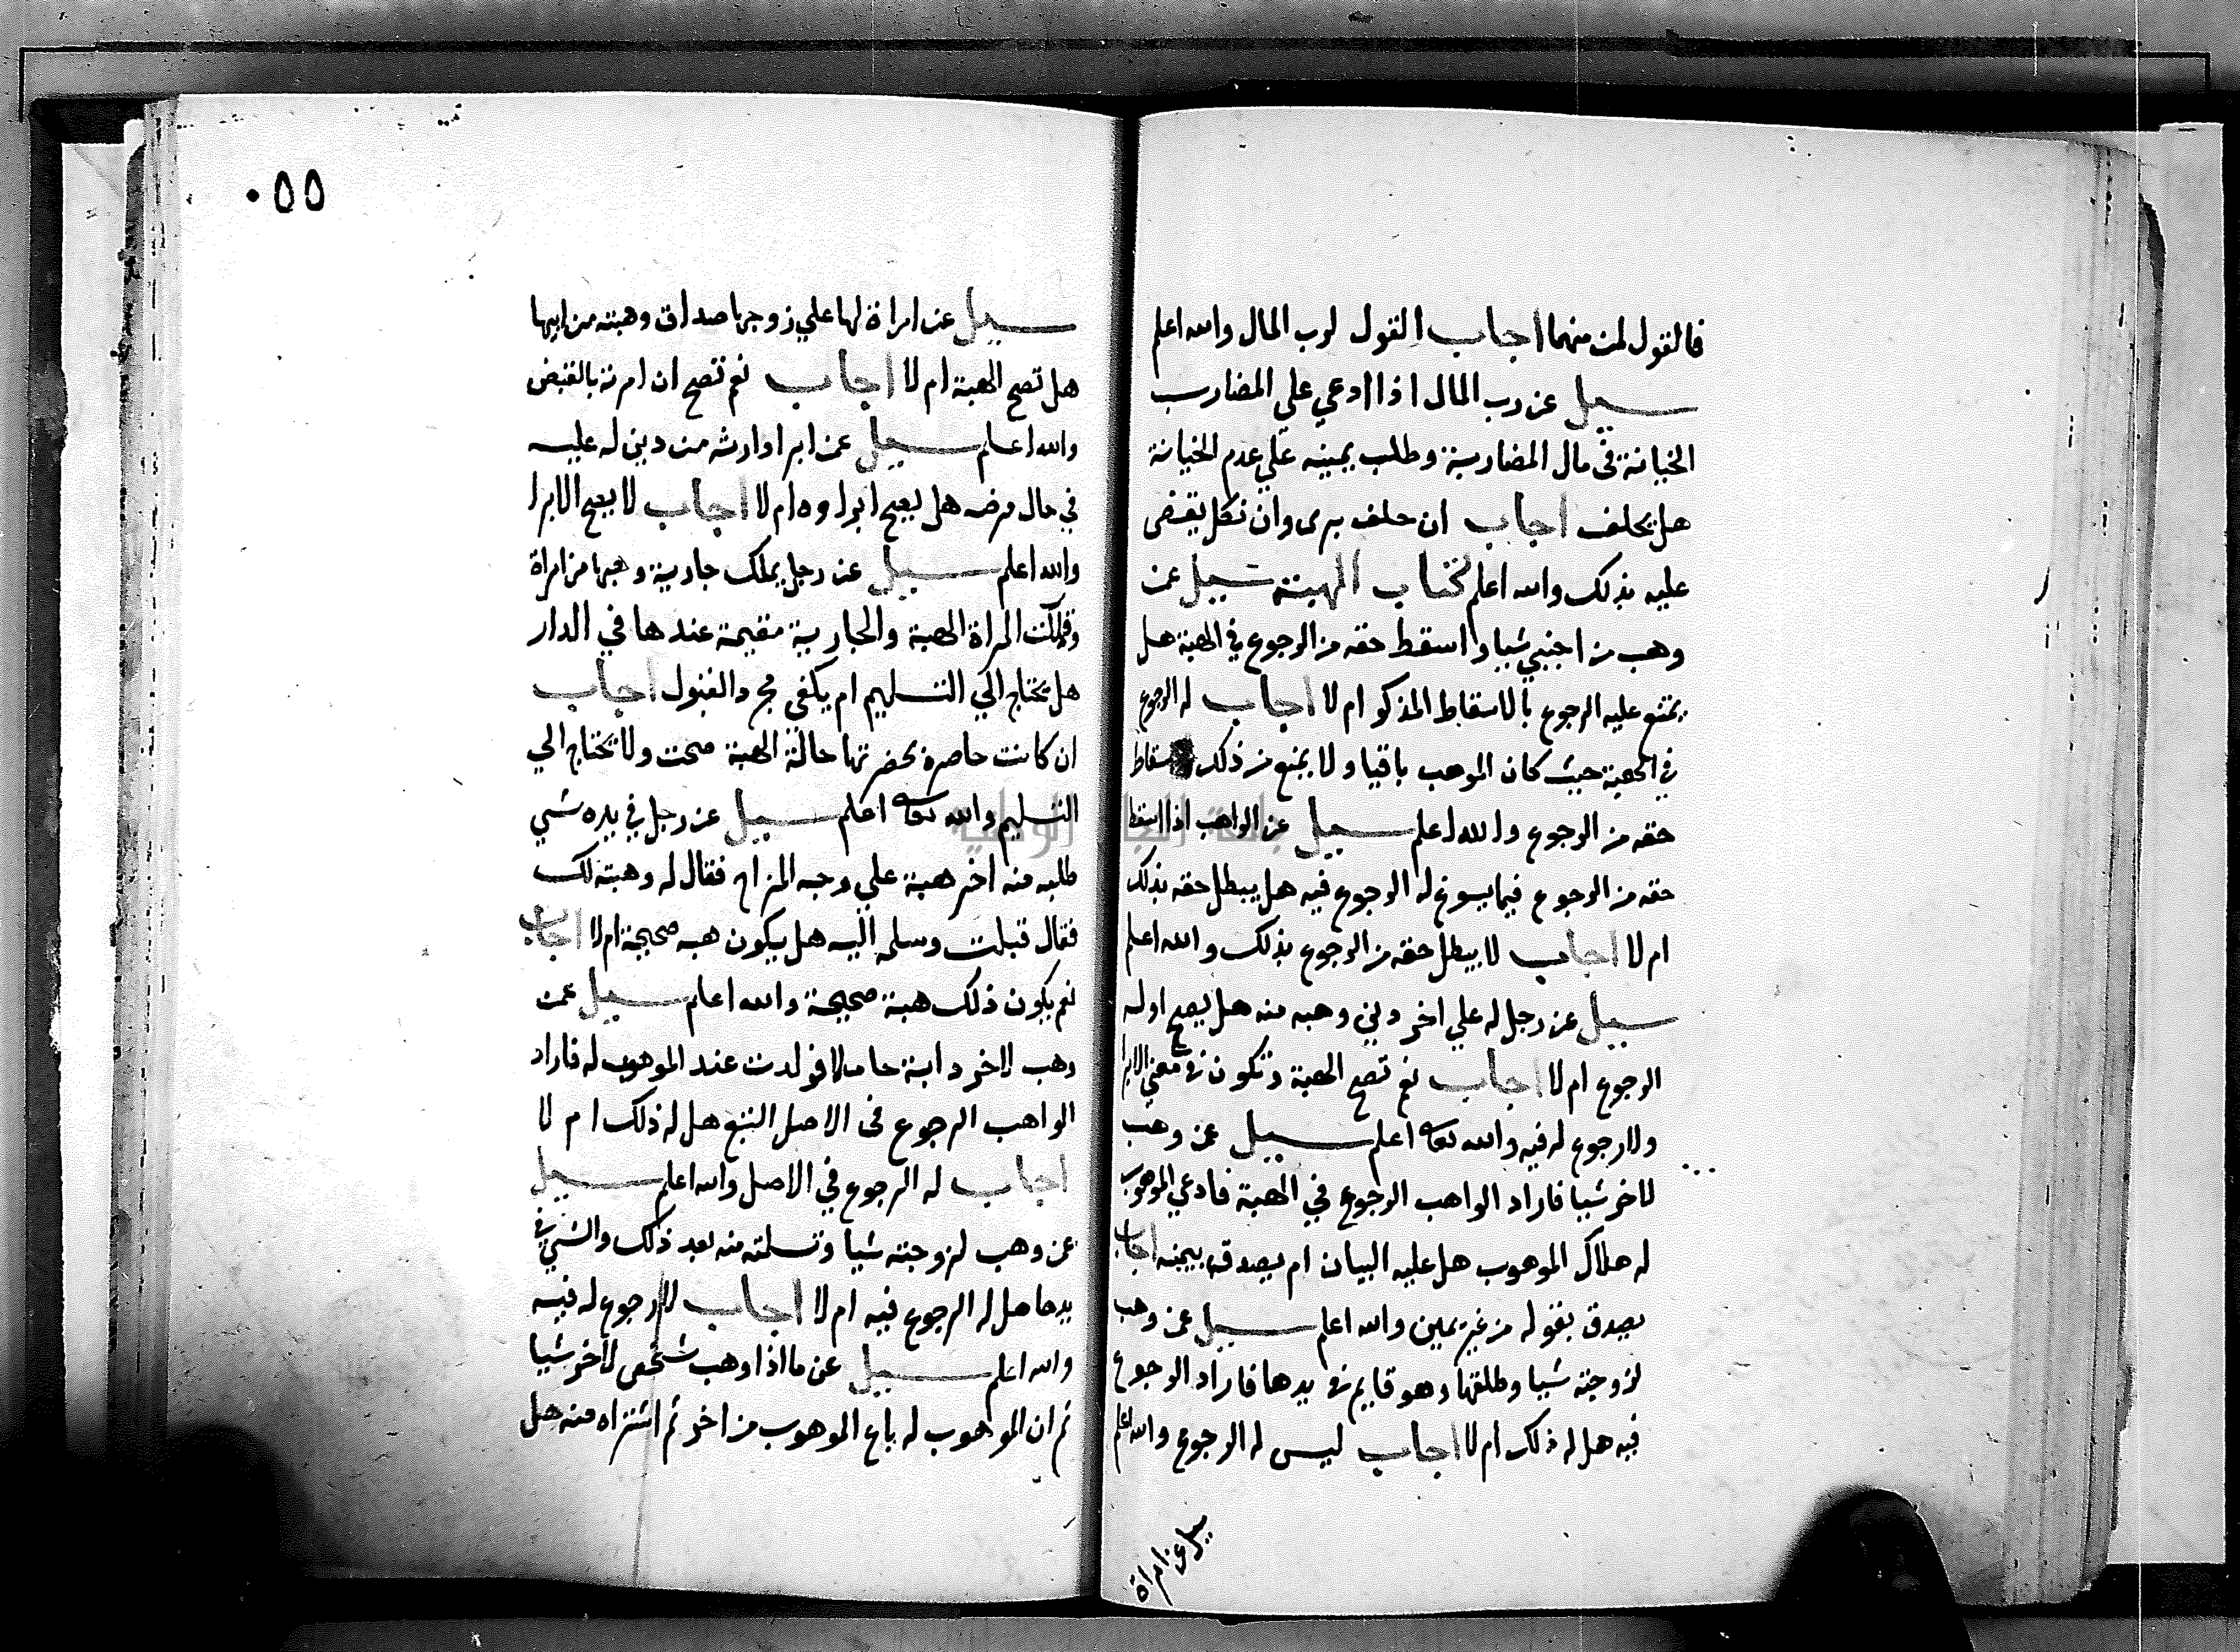 فالقول لمن منهما اجاب القول لرب المال والله اعلم
سيل عن رب المال اذا ادعي علي المضارب
الخيانة فى مال المضاربة وطلب يمينه علي عدم الخيانة
هل يحلف اجاب ان حلف برى وان نكل يقضى
عليه بذلك والله اعلم كتاب الهبة سيل عمن
وهب من اجنبي شيا واسقط حقه من الرجوع في الهبة هل
يمتنع عليه الرجوع بالاسقاط المذكو ام لا اجاب له الرجوع
في الهبة حيث كان الموهب باقيا ولا يمنع من ذلك اسقاط
حقه من الرجوع والله اعلم سيل عن الواهب اذا اسقط
حقه من الرجوع فيما يسوغ له الرجوع فيه هل يبطل حقه بذلك
ام لا اجاب لا يبطل حقه من الرجوع بذلك والله اعلم
سيل عن رجل له علي اخر دين وهبه منه هل يصح اوله
الرجوع ام لا اجاب نعم تصح الهبة وتكون في معني الابرا
ولا رجوع له فيه والله تعالى اعلم سيل عمن وهب
لاخر شيا فاراد الواهب الرجوع في الهبة فادعي الموهوب
له هلاك الموهوب هل عليه البيان ام يصدق بيمينه اجاب
يصدق بقوله من غير يمين والله اعلم سيل عمن وهب
لزوجته شيا وطلقها وهو قايم في يدها فاراد الرجوع
فيه هل له ذلك ام لا اجاب ليس له الرجوع والله اعلم
سيل عن امراة
٥٥٠
سيل عن امراة لها علي زوجها صداق وهبته من ابيها
هل تصح الهبة ام لا اجاب نعم تصح ان امرته بالقبض
والله اعلم سيل عمن ابرا وارثه من دين له عليه
في حال مرضه هل يصح ابراوه ام لا اجاب لا يصح الابرا
والله اعلم سيل عن رجل يملك جارية وهبها من امراة
وقبلت المراة الهبة والجارية مقيمة عندها في الدار
هل يحتاج الي التسليم ام يكفى مجرد القبول اجاب
ان كانت حاضرة بحضرتها حالة الهبة صحت ولا يحتاج الي
التسليم والله تعالى اعلم سيل عن رجل في يده شي
طلبه منه اخر هبة علي وجه المزاح فقال له وهبته لك
فقال قبلت وسلمه اليه هل يكون هبه صحيحة ام لا اجاب
نعم يكون ذلك هبة صحيحة والله اعلم سيل عمن
وهب لاخر دابة حاملا فولدت عند الموهوب له فاراد
الواهب الرجوع فى الاصل التبع هل له ذلك ام لا
اجاب له الرجوع في الاصل والله اعلم سيل
عمن وهب لزوجته شيا وتسلمته منه بعد ذلك والشي في
يدها هل له الرجوع فيه ام لا اجاب لا رجوع له فيه
والله اعلم سيل عن ما اذا وهب شخص لاخر شيا
ثم ان الموهوب له باع الموهوب من اخر ثم اشتراه منه هل